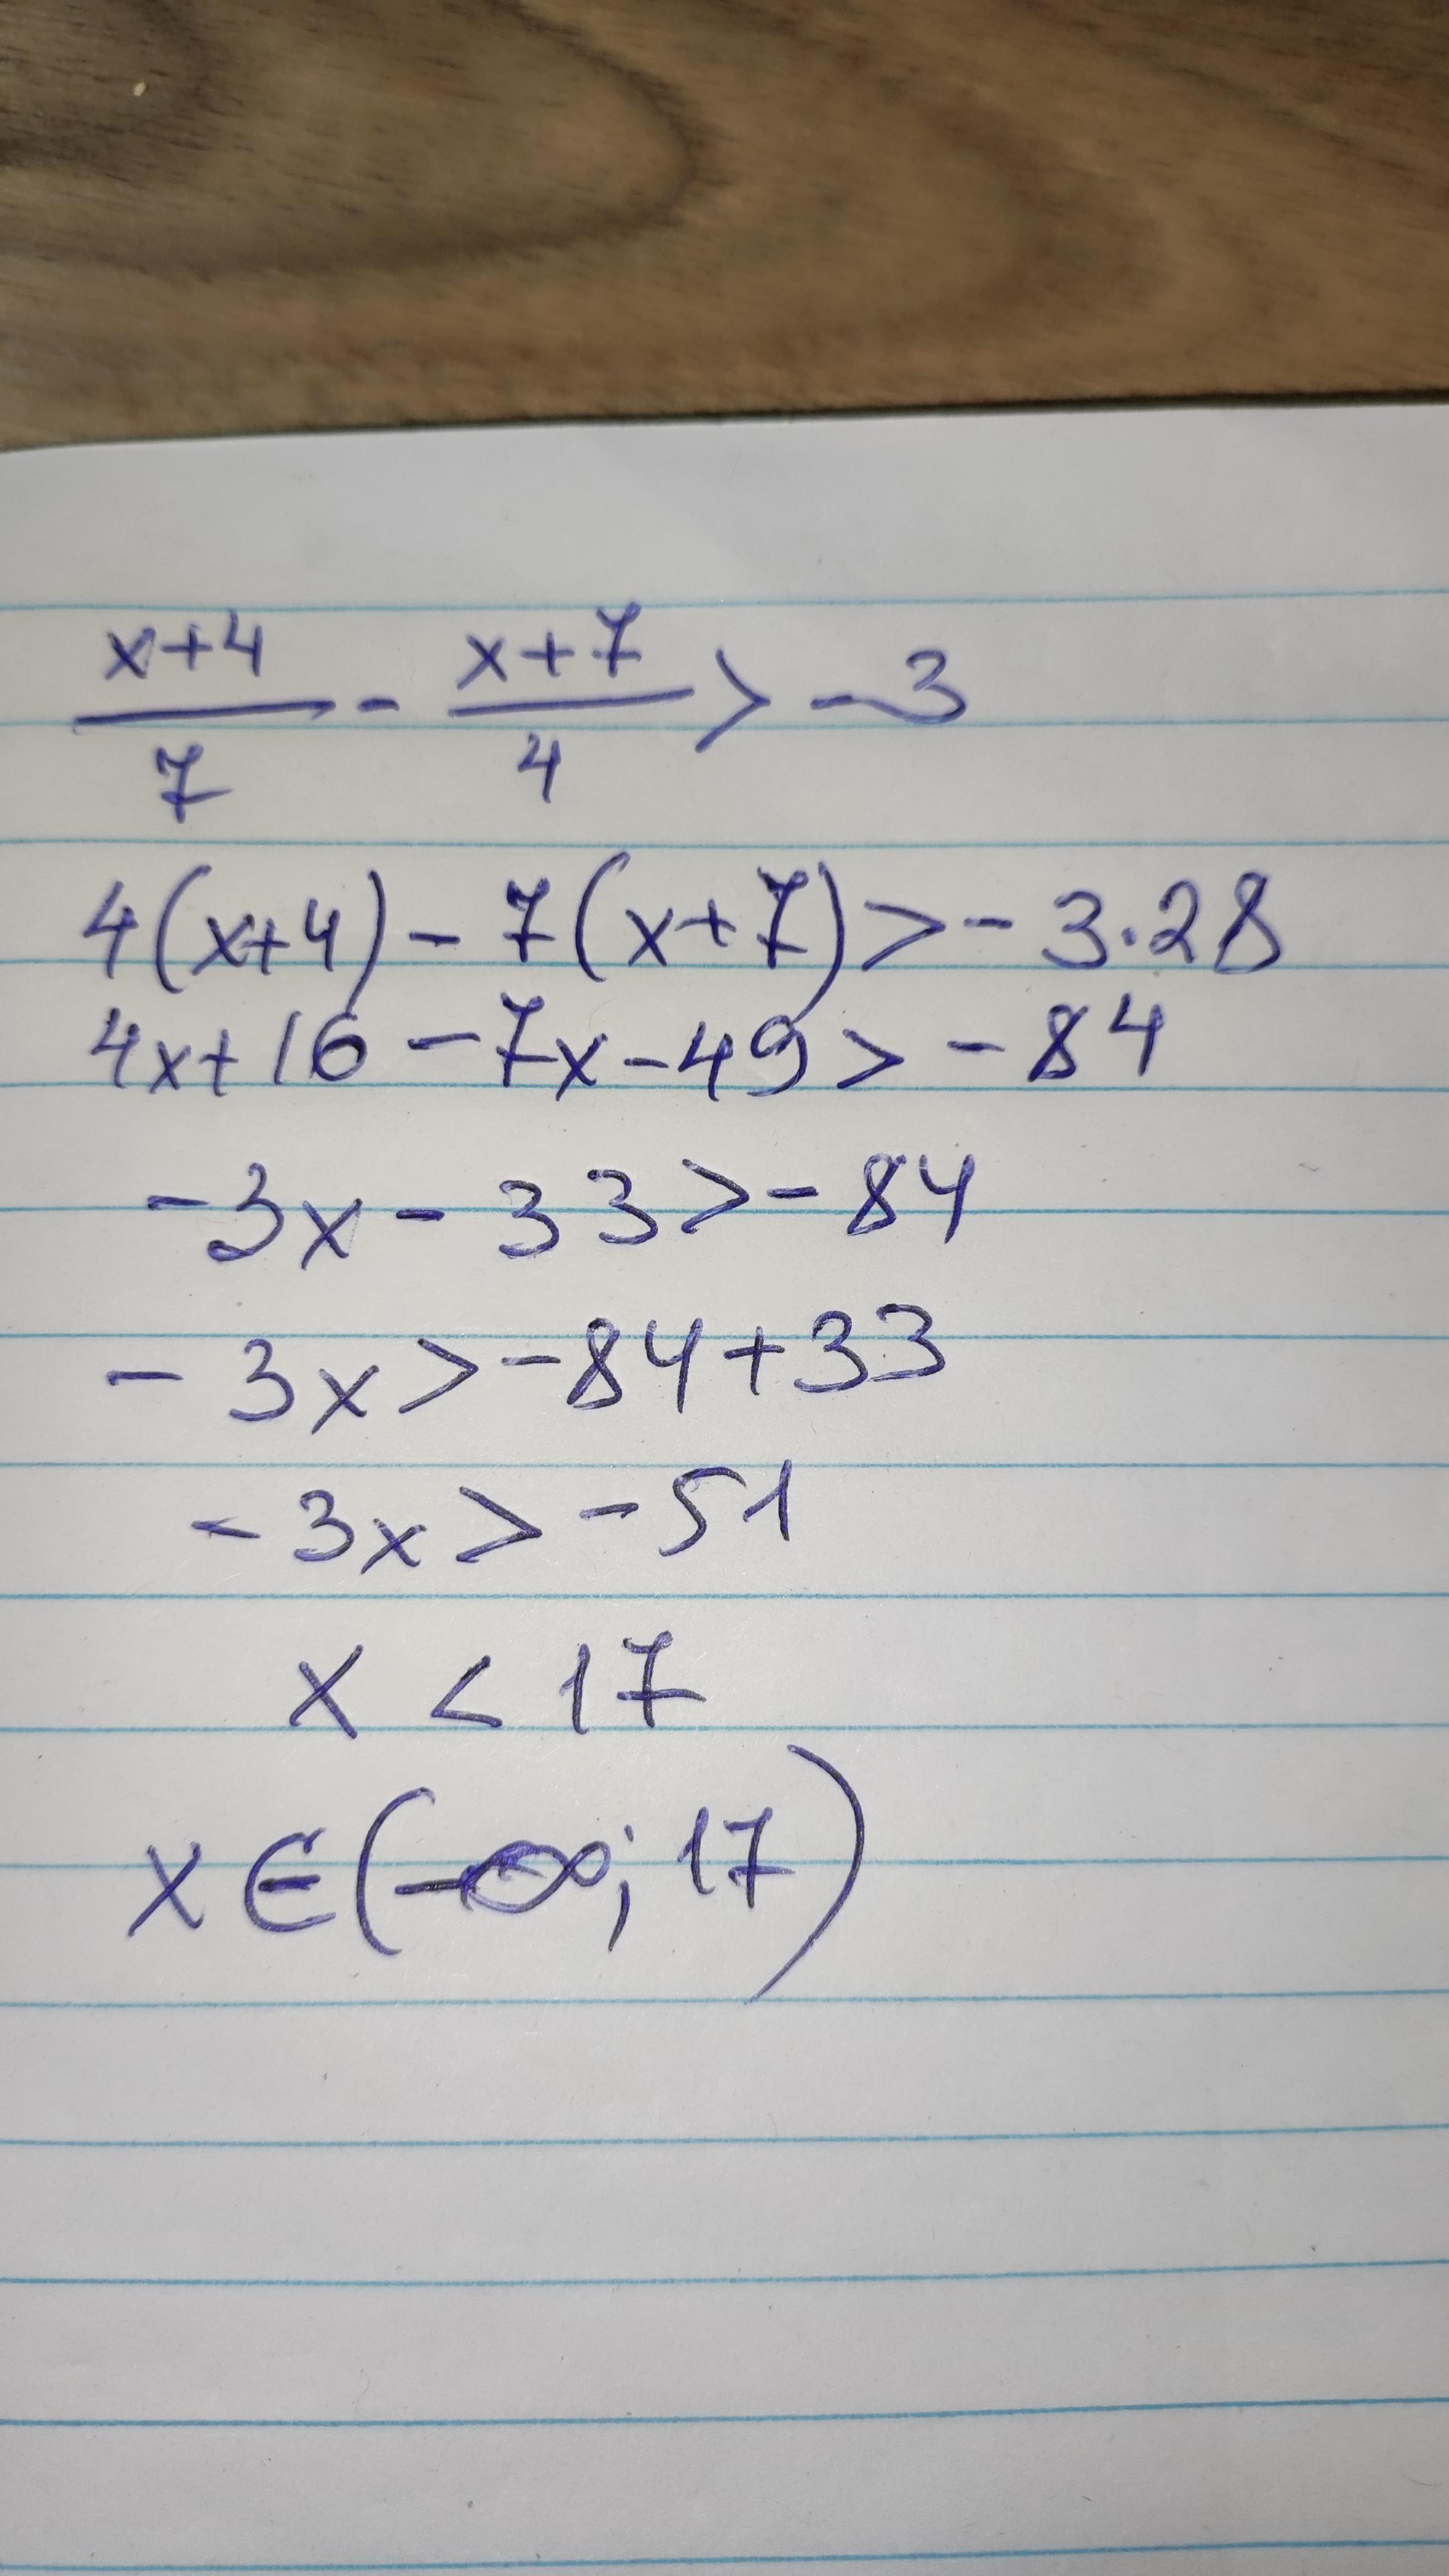 (x+4)/7 - (x+7)/4 > -3
4(x+4) - 7(x+7) > -3·28
4x+16 - 7x - 49 > -84
-3x - 33 > -84
-3x > -84+33
-3x > -51
x < 17
x ∈ (-∞; 17)